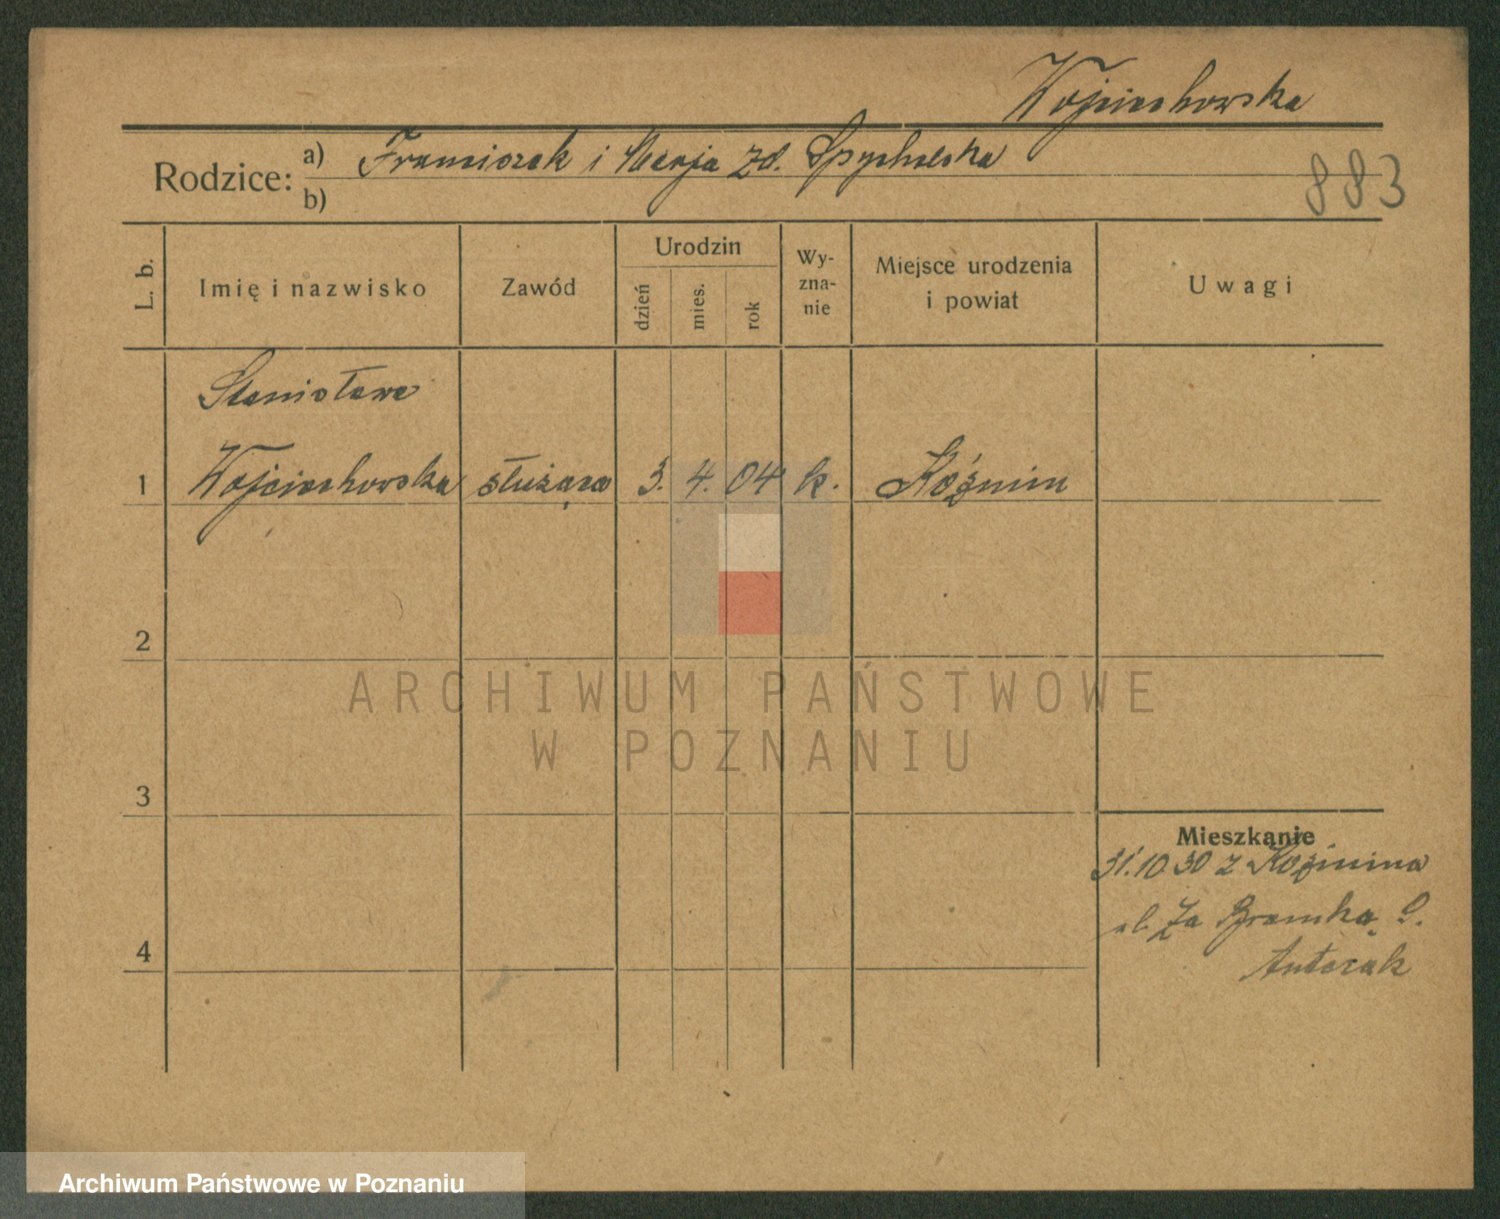 Wojciechowska
Rodzice: a) Franciszek i Marja zd. Spychalska
b)
883
L. b. Imię i nazwisko Zawód Urodzin dzień mies. rok Wyznanie Miejsce urodzenia i powiat Uwagi
Stanisława
1 Wojciechowska służąca 3. 4. 04 k. Koźmin
2
ARCHIWUM PAŃSTWOWE
W POZNANIU
3
Mieszkanie
31.10 30 z Koźmina
ul. Za Bramką
4
Antczak
Archiwum Państwowe w Poznaniu